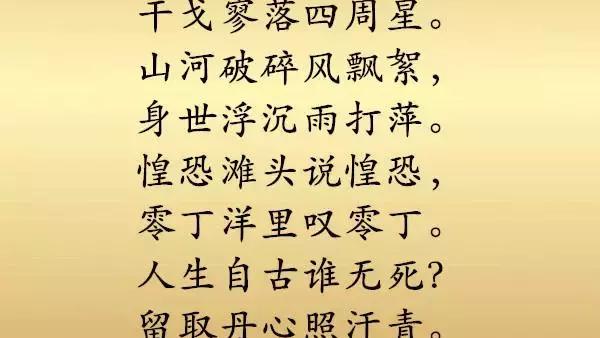 干戈寥落四周星。
山河破碎风飘絮，
身世浮沉雨打萍。
惶恐滩头说惶恐，
零丁洋里叹零丁。
人生自古谁无死？
留取丹心照汗青。